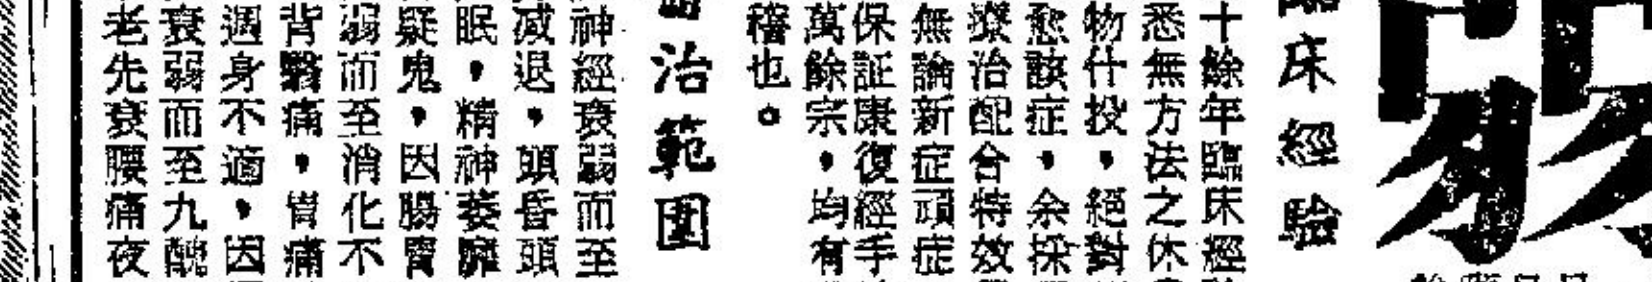 弱
臨床經驗
十餘年臨床經
悉無方法之休
物什投，絕對
愈該症，余採
療治配合特效
無論新症頑症
保証康復經手
萬餘宗，均有
稽也。
治範圍
神經衰弱而至
減退，頭昏頭
眠，精神萎靡
疑鬼，因腸胃
弱而至消化不
背醫痛，胃痛
週身不適，因
衰弱而至九醜
老先衰腰痛夜